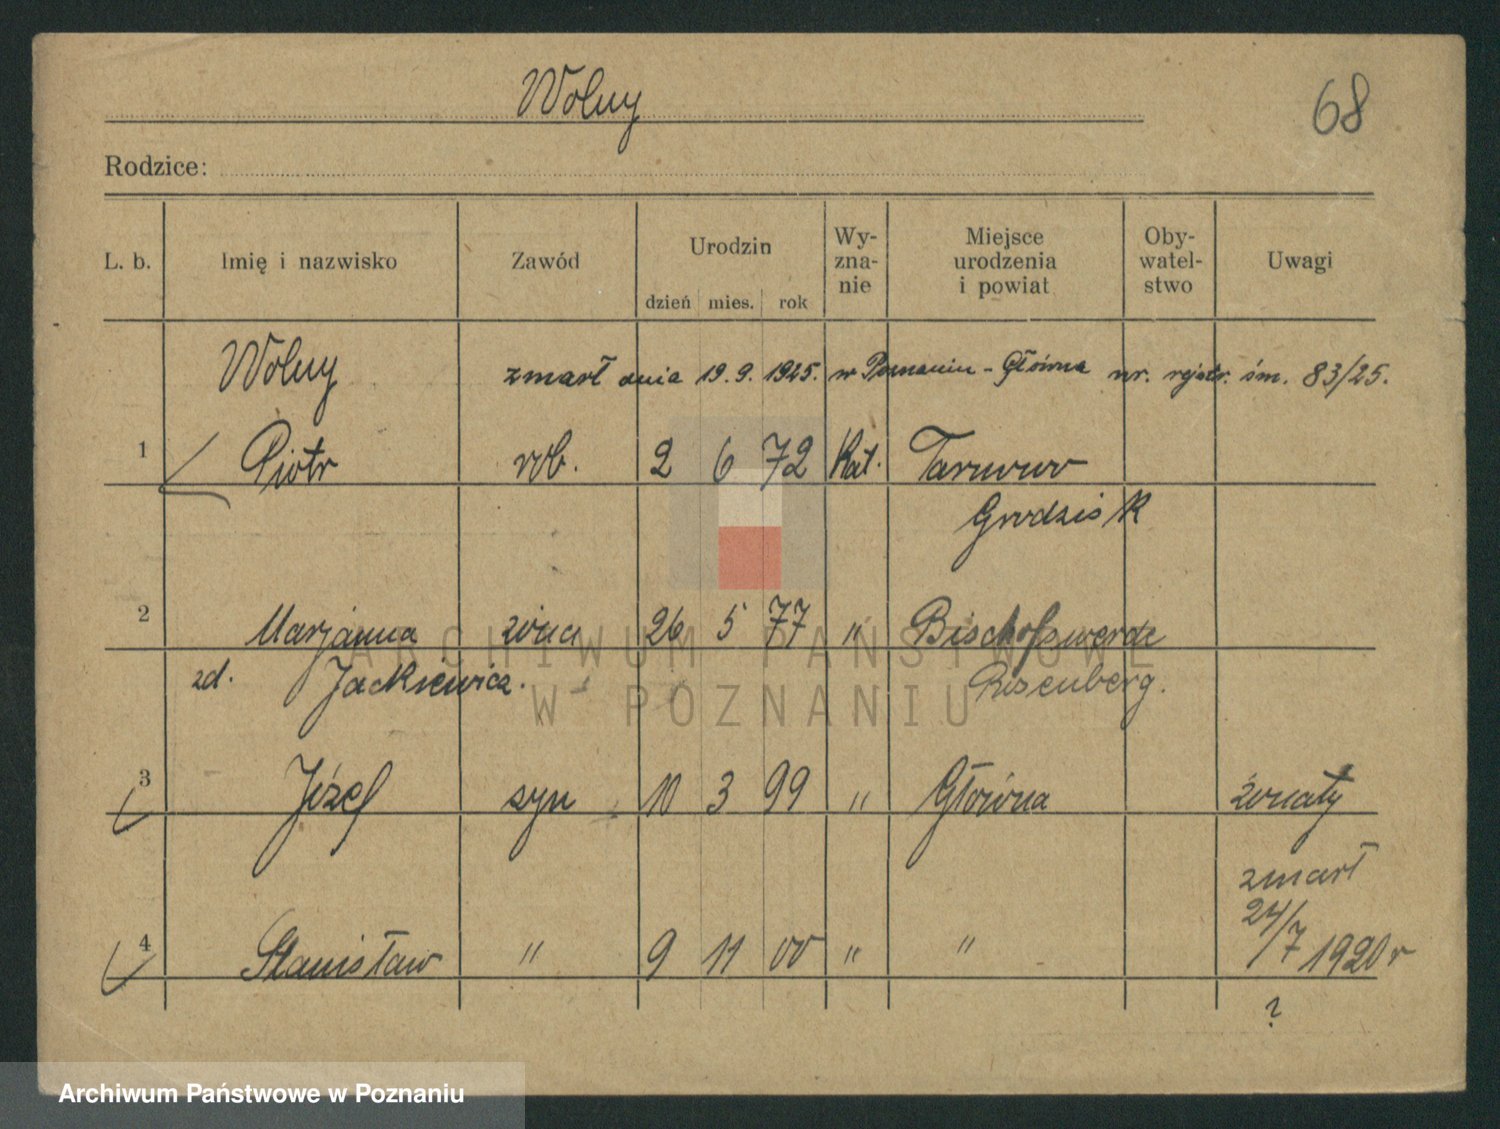 Wolny
68
Rodzice:
L. b. Imię i nazwisko Zawód Urodzin dzień mies. rok Wy-zna-nie Miejsce urodzenia i powiat Oby-watel-stwo Uwagi
Wolny zmarł dnia 19.9.1925. w Poznaniu - Główna nr. rejestr. śm. 83/25.
1 Piotr rob. 2 6 72 Kat. Tarnowo
Grodzisk
2 Marjanna żona 26 5 77 " Bischofswerde
zd. Jackiewicz. Risenberg.
3 Józef syn 10 3 99 " Główna żonaty
zmarł
4 Stanisław " 9 11 00 " " 24/7 1920 r
?
ARCHIWUM PAŃSTWOWE
W POZNANIU
Archiwum Państwowe w Poznaniu